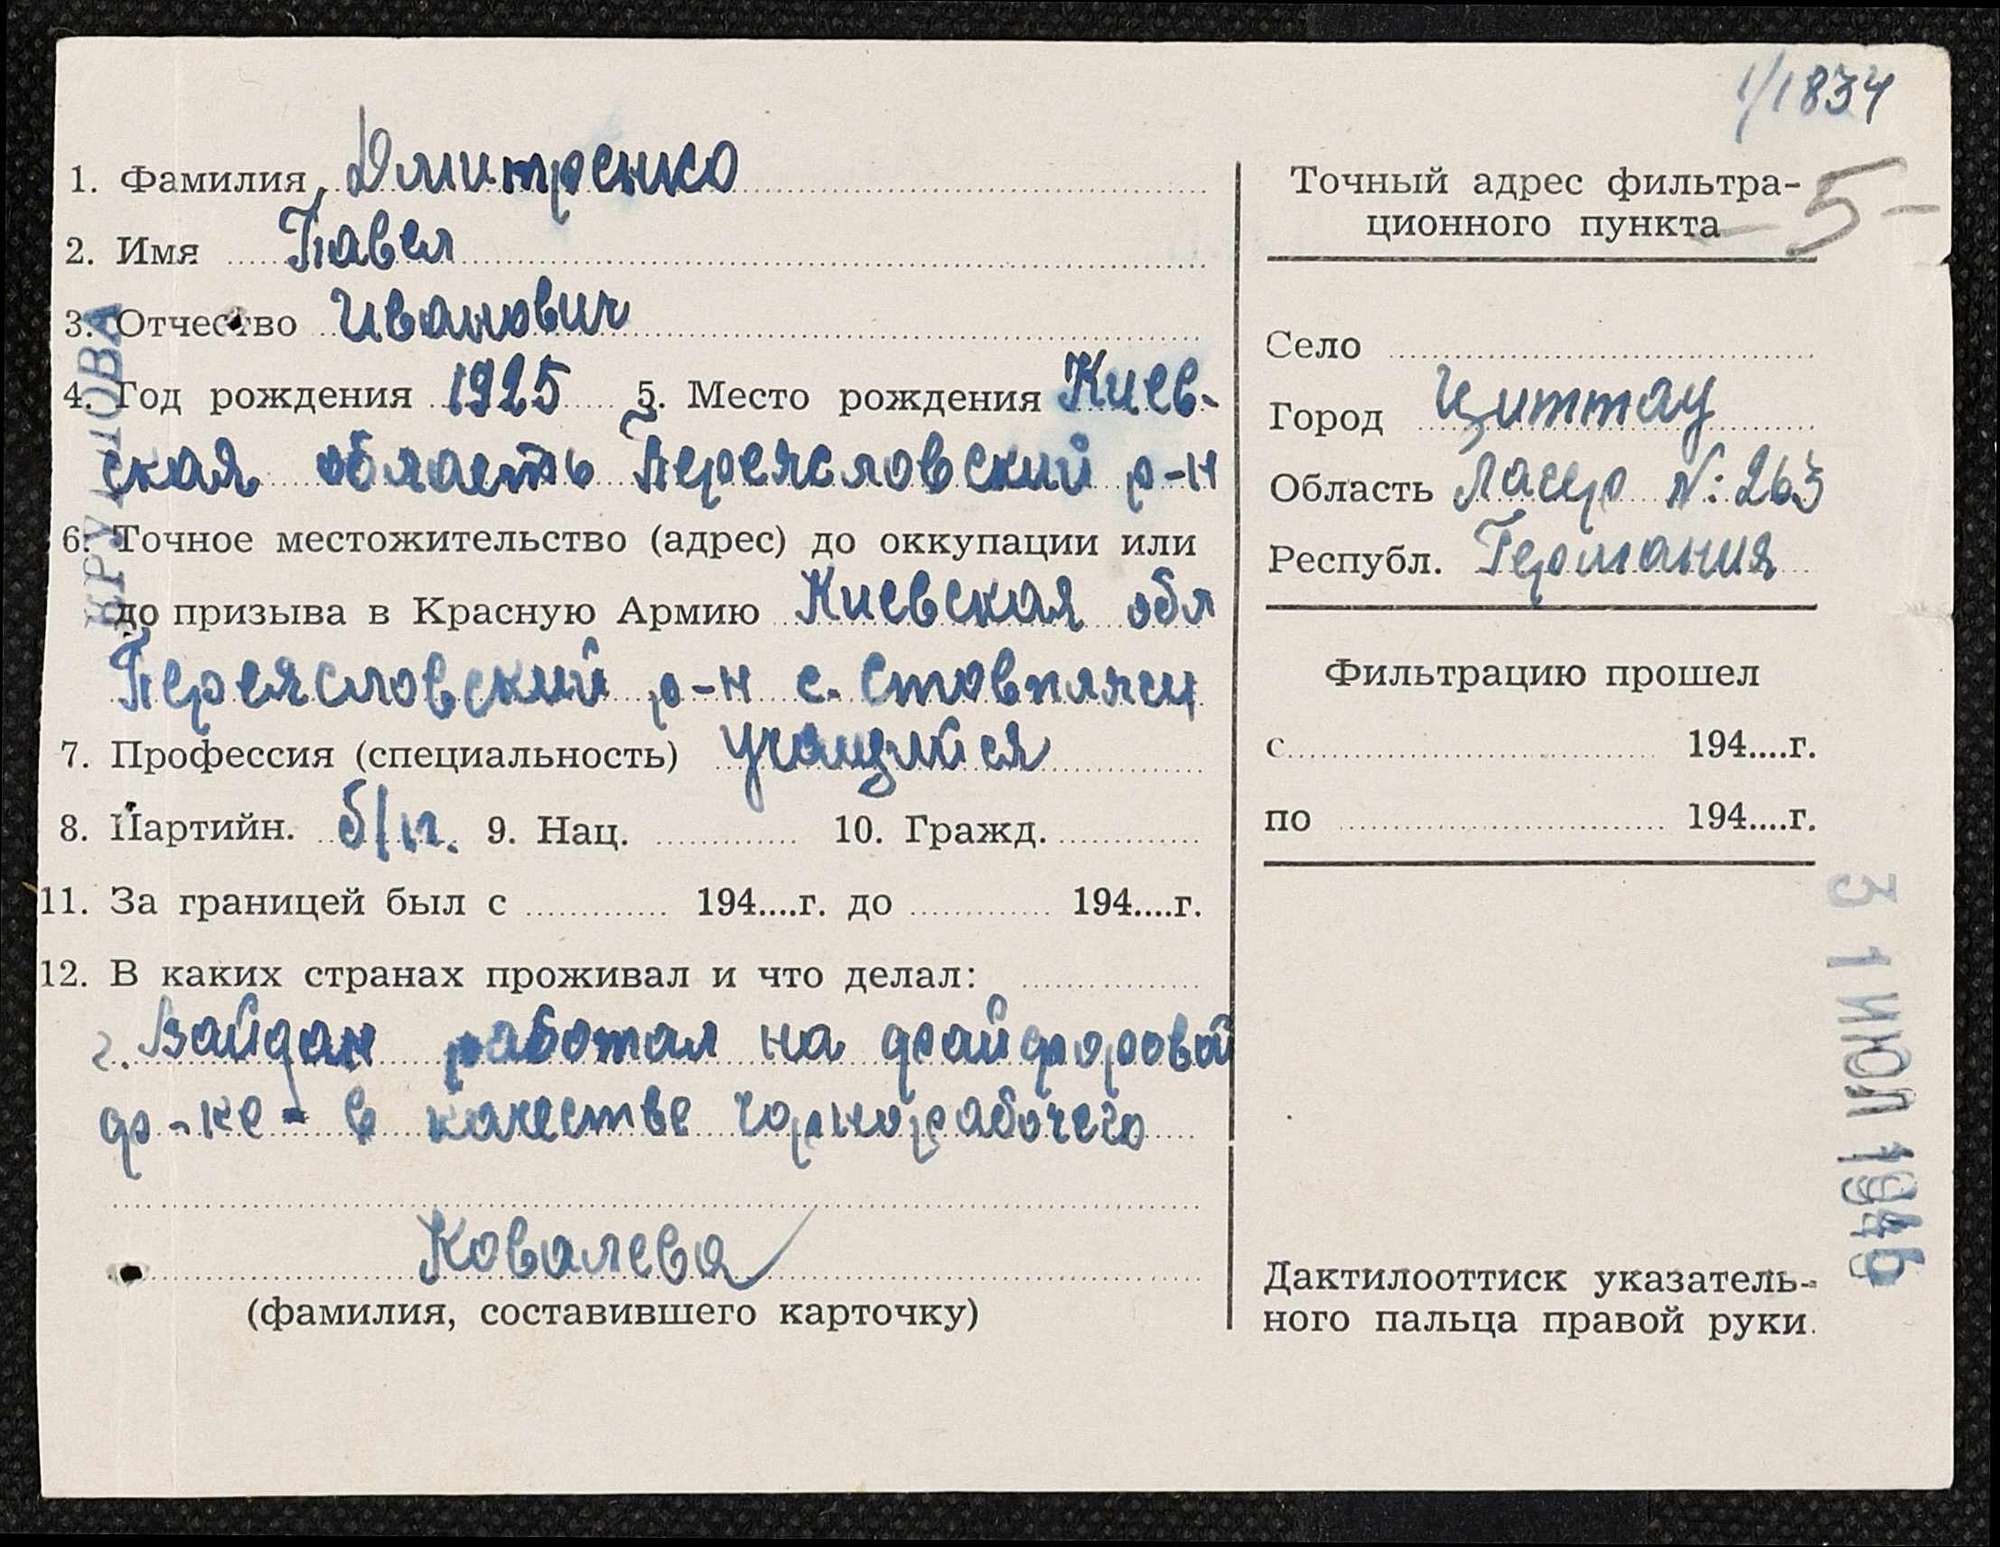 1/1834
1. Фамилия Дмитренко
2. Имя Павел
3. Отчество Иванович
4. Год рождения 1925 5. Место рождения Киев-
ская область Переясловский р-н
6. Точное местожительство (адрес) до оккупации или
до призыва в Красную Армию Киевская обл
Переясловский р-н с. Стовпяги
7. Профессия (специальность) учащийся
8. Партийн. б/п. 9. Нац. 10. Гражд.
11. За границей был с 194....г. до 194....г.
12. В каких странах проживал и что делал:
г. Вайдан работал на фрайфоровой
ф-ке - в качестве чорнорабочего
Ковалева
(фамилия, составившего карточку)
Точный адрес фильтра-
ционного пункта
-5-
Село
Город Циттау
Область Лагер №: 263
Республ. Германия
Фильтрацию прошел
с 194....г.
по 194....г.
31 ИЮЛ 1946
Дактилооттиск указатель-
ного пальца правой руки.